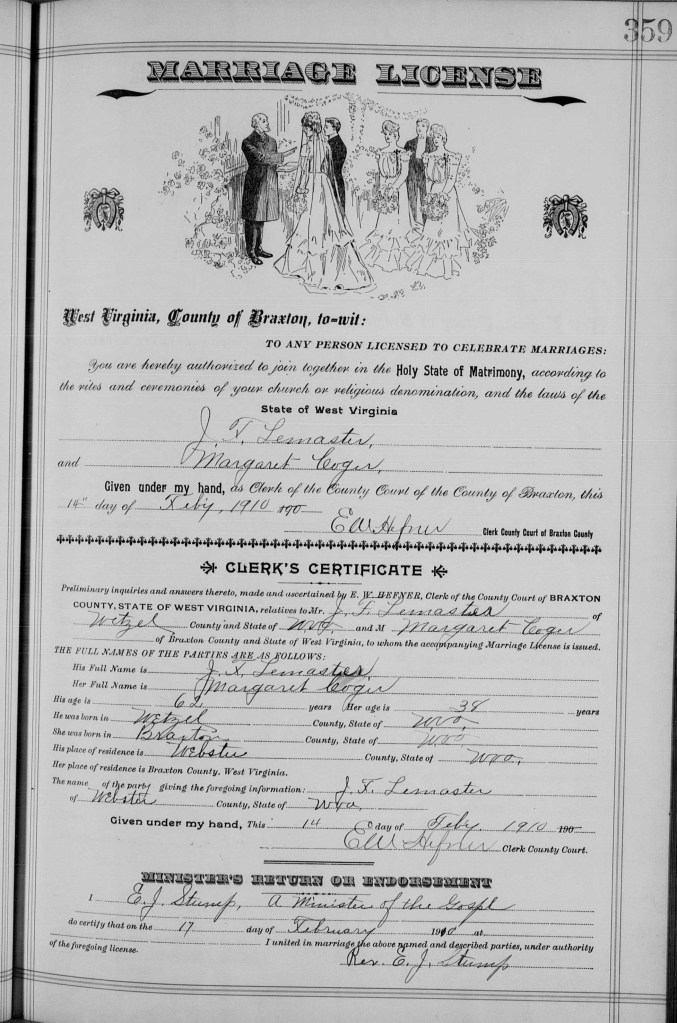 359
MARRIAGE LICENSE
West Virginia, County of Braxton, to-wit:
TO ANY PERSON LICENSED TO CELEBRATE MARRIAGES:
You are hereby authorized to join together in the Holy State of Matrimony, according to
the rites and ceremonies of your church or religious denomination, and the laws of the
State of West Virginia
J. F. Lemaster,
and Margaret Coger,
Given under my hand, as Clerk of the County Court of the County of Braxton, this
14" day of Feby, 1910 190
E W Hefner Clerk County Court of Braxton County
CLERK'S CERTIFICATE
Preliminary inquiries and answers thereto, made and ascertained by E. W. HEFNER, Clerk of the County Court of BRAXTON
COUNTY, STATE OF WEST VIRGINIA, relatives to Mr. J. F. Lemaster of
Wetzel County and State of WVa, and M Margaret Coger
of Braxton County and State of West Virginia, to whom the accompanying Marriage License is issued.
THE FULL NAMES OF THE PARTIES ARE AS FOLLOWS:
His Full Name is J. F. Lemaster,
Her Full Name is Margaret Coger
His age is 62 years Her age is 38 years
He was born in Wetzel County, State of WVa,
She was born in Braxton County, State of WVa
His place of residence is Webster County, State of WVa,
Her place of residence is Braxton County, West Virginia.
The name of the party giving the foregoing information: J. F. Lemaster
of Webster County, State of WVa,
Given under my hand, This 14 day of Feby. 1910 190
E W Hefner Clerk County Court.
MINISTER'S RETURN OR ENDORSEMENT
I E. J. Stump, A Minister of the Gospl
do certify that on the 17 day of February 1910 at
I united in marriage the above named and described parties, under authority
of the foregoing license.
Rev. E. J. Stump